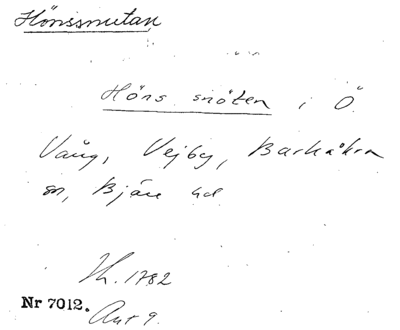 Hönssnutan
Höns snöten i Ö
Vång, Vejby, Barkåkra
sn, Bjäre hd
Th. 1782
Nr 7012.
Ant 9.